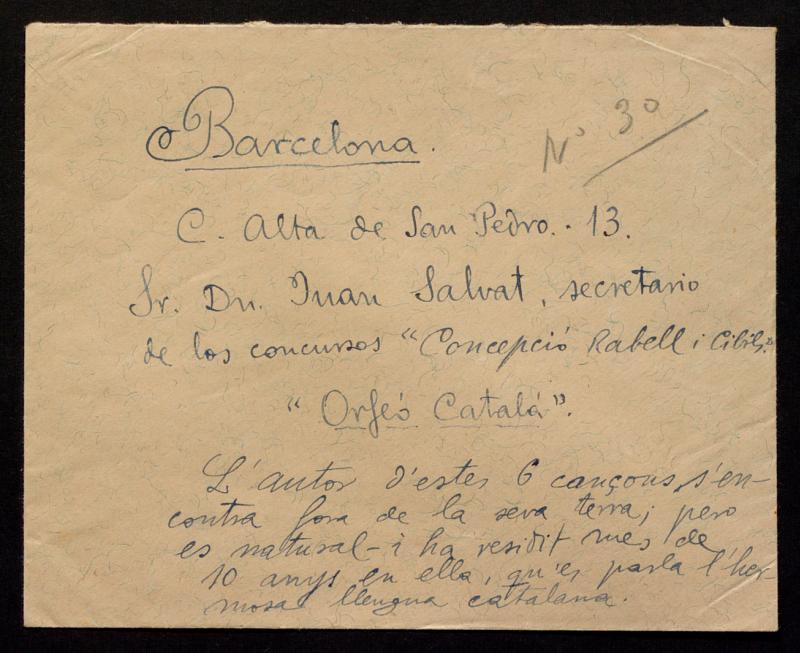 Barcelona.
Nº 3º
C. Alta de San Pedro. - 13.
Sr. Dn. Juan Salvat, secretario
de los concursos "Concepció Rabell i Cibils."
"Orfeó Català".
L'autor d'estes 6 cançons, s'en-
contra fora de la seva terra; pero
es natural - i ha residit mes de
10 anys en ella, qu'es parla l'her-
mosa llengua catalana.